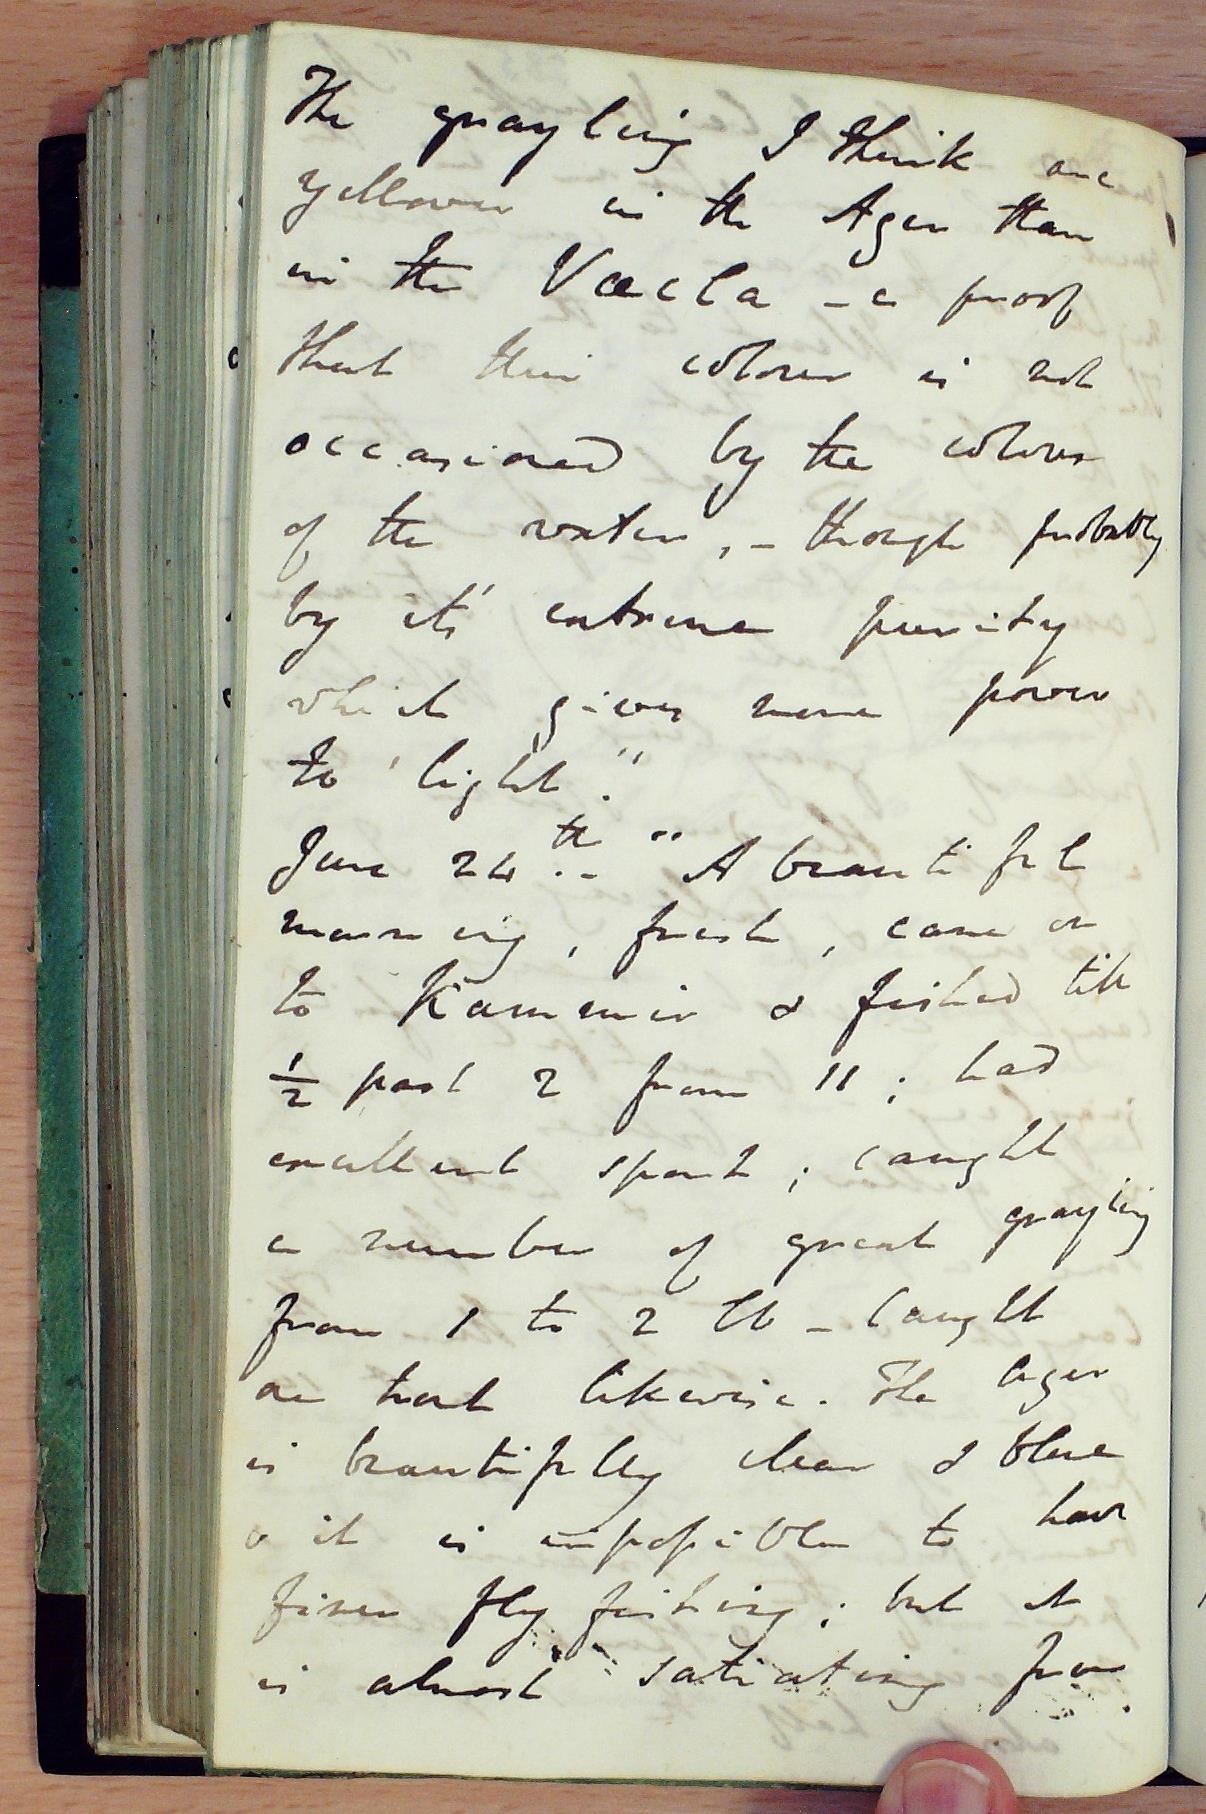 The grayling I think are
yellower in the Ager than
in the Vöcla – a proof
that their colour is not
occasioned by the colour
of the water, – though probably
by it's extreme purity
which gives more power
to "light."
June 24th. – "A beautiful
morning, fresh, came on
to Kammer & fished till
½ past 2 from 11; had
excellent sport; caught
a number of great grayling
from 1 to 2 lb – caught
one trout likewise. The Ager
is beautifully clear & blue
& it is impossible to have
finer fly fishing; but it
is almost satiating from